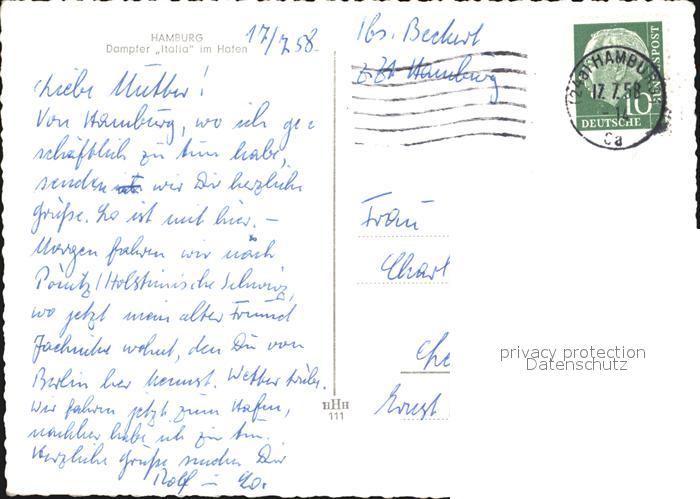 HAMBURG
Dampfer „Italia" im Hafen
17/7.58.
Liebe Mutter!
Von Hamburg, wo ich ge=
schäftlich zu tun habe,
senden wir Dir herzliche
Grüße. Lo ist mit hier. –
Morgen fahren wir nach
Holsteinische Schweiz,
wo jetzt mein alter Freund
wohnt, den Du von
Berlin her kennst. Wetter trübe.
Wir fahren jetzt zum Hafen,
nachher habe ich zu tun.
Herzliche Grüße senden Dir
Rolf u. Lo.
HHH
111
Abs. Beckert
z.Zt. Hamburg
(24a) HAMBURG
17.7.58
ca
10
DEUTSCHE
BUNDESPOST
Frau
Charl
Che
Ernst
privacy protection
Datenschutz